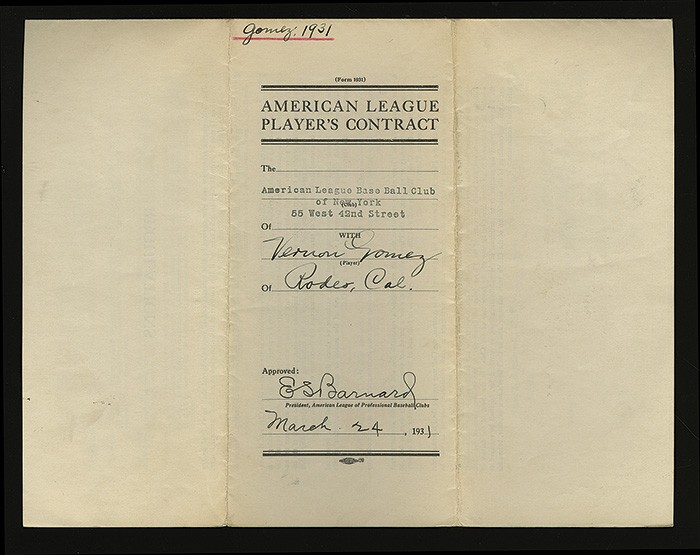 Gomez, 1931
(Form 1931)
AMERICAN LEAGUE
PLAYER'S CONTRACT
The
American League Base Ball Club
of New York
(Club)
55 West 42nd Street
Of
WITH
Vernon Gomez
(Player)
Of Rodeo, Cal.
Approved:
E S Barnard
President, American League of Professional Baseball Clubs
March 24, 1931